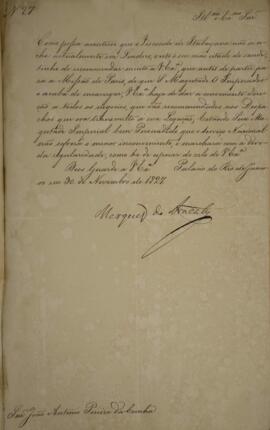 N.º 27
Ill.mo e Ex.mo Snr.
Como possa acontecer que o Visconde de Itabayana não se
ache actualmente em Londres, ou esteja em máo estado de saude,
tenho de recommendar muito a V. Ex.ª, que antes de partir pa-
ra a Missão de Paris, de que S. Magestade O Imperador
o acaba de encarregar, V. Ex.ª haja de dar o conveniente
a todos os negocios, que vão recommendados nos Despa-
chos que a essa Legação, Estando Sua Ma-
gestade Imperial bem Persuadido que o Serviço Nacional
não sofrerá o menor inconveniente, e marchará com a devi-
da regularidade, como he de esperar do zelo de V. Ex.ª
Deos Guarde a V. Ex.ª Palacio do Rio de Janei-
ro em 30 de Novembro de 1827
Marquez de Aracaty
Snr. João Antonio Pereira da Cunha